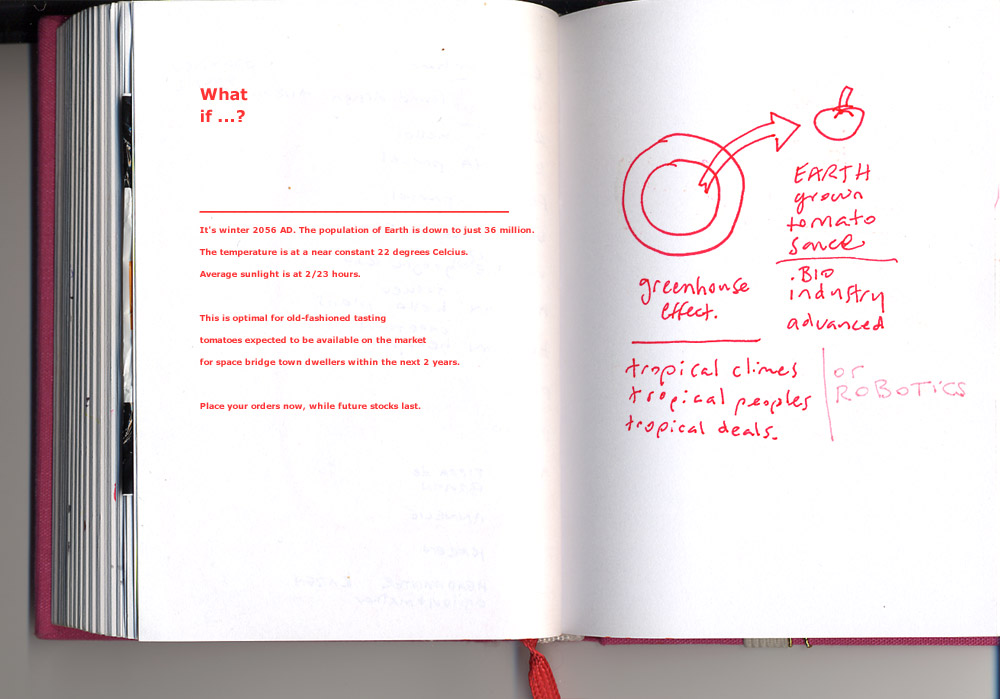 What
if ...?
It's winter 2056 AD. The population of Earth is down to just 36 million.
The temperature is at a near constant 22 degrees Celcius.
Average sunlight is at 2/23 hours.
This is optimal for old-fashioned tasting
tomatoes expected to be available on the market
for space bridge town dwellers within the next 2 years.
Place your orders now, while future stocks last.
EARTH
grown
tomato
sauce
.BIO
industry
advanced
greenhouse
effect.
tropical climes
tropical peoples
tropical deals.
or
ROBOTICS